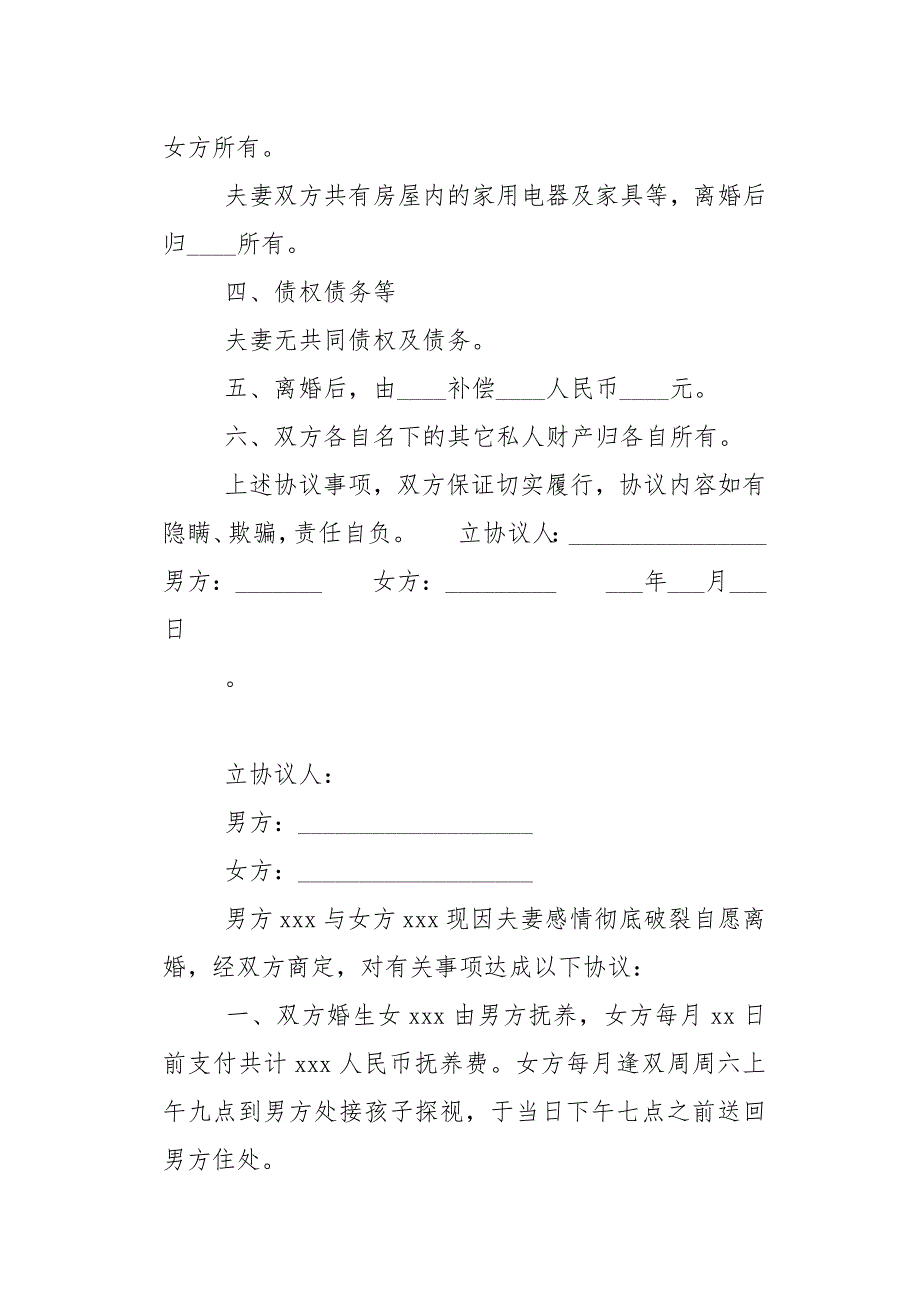 女方所有。
夫妻双方共有房屋内的家用电器及家具等，离婚后
归____所有。
四、债权债务等
夫妻无共同债权及债务。
五、离婚后，由____补偿____人民币____元。
六、双方各自名下的其它私人财产归各自所有。
上述协议事项，双方保证切实履行，协议内容如有
隐瞒、欺骗，责任自负。 立协议人：________________
男方：_______ 女方：_________ ___年___月___
日
。
立协议人：
男方：___________________
女方：___________________
男方 xxx 与女方 xxx 现因夫妻感情彻底破裂自愿离
婚，经双方商定，对有关事项达成以下协议：
一、双方婚生女 xxx 由男方抚养，女方每月 xx 日
前支付共计 xxx 人民币抚养费。女方每月逢双周周六上
午九点到男方处接孩子探视，于当日下午七点之前送回
男方住处。